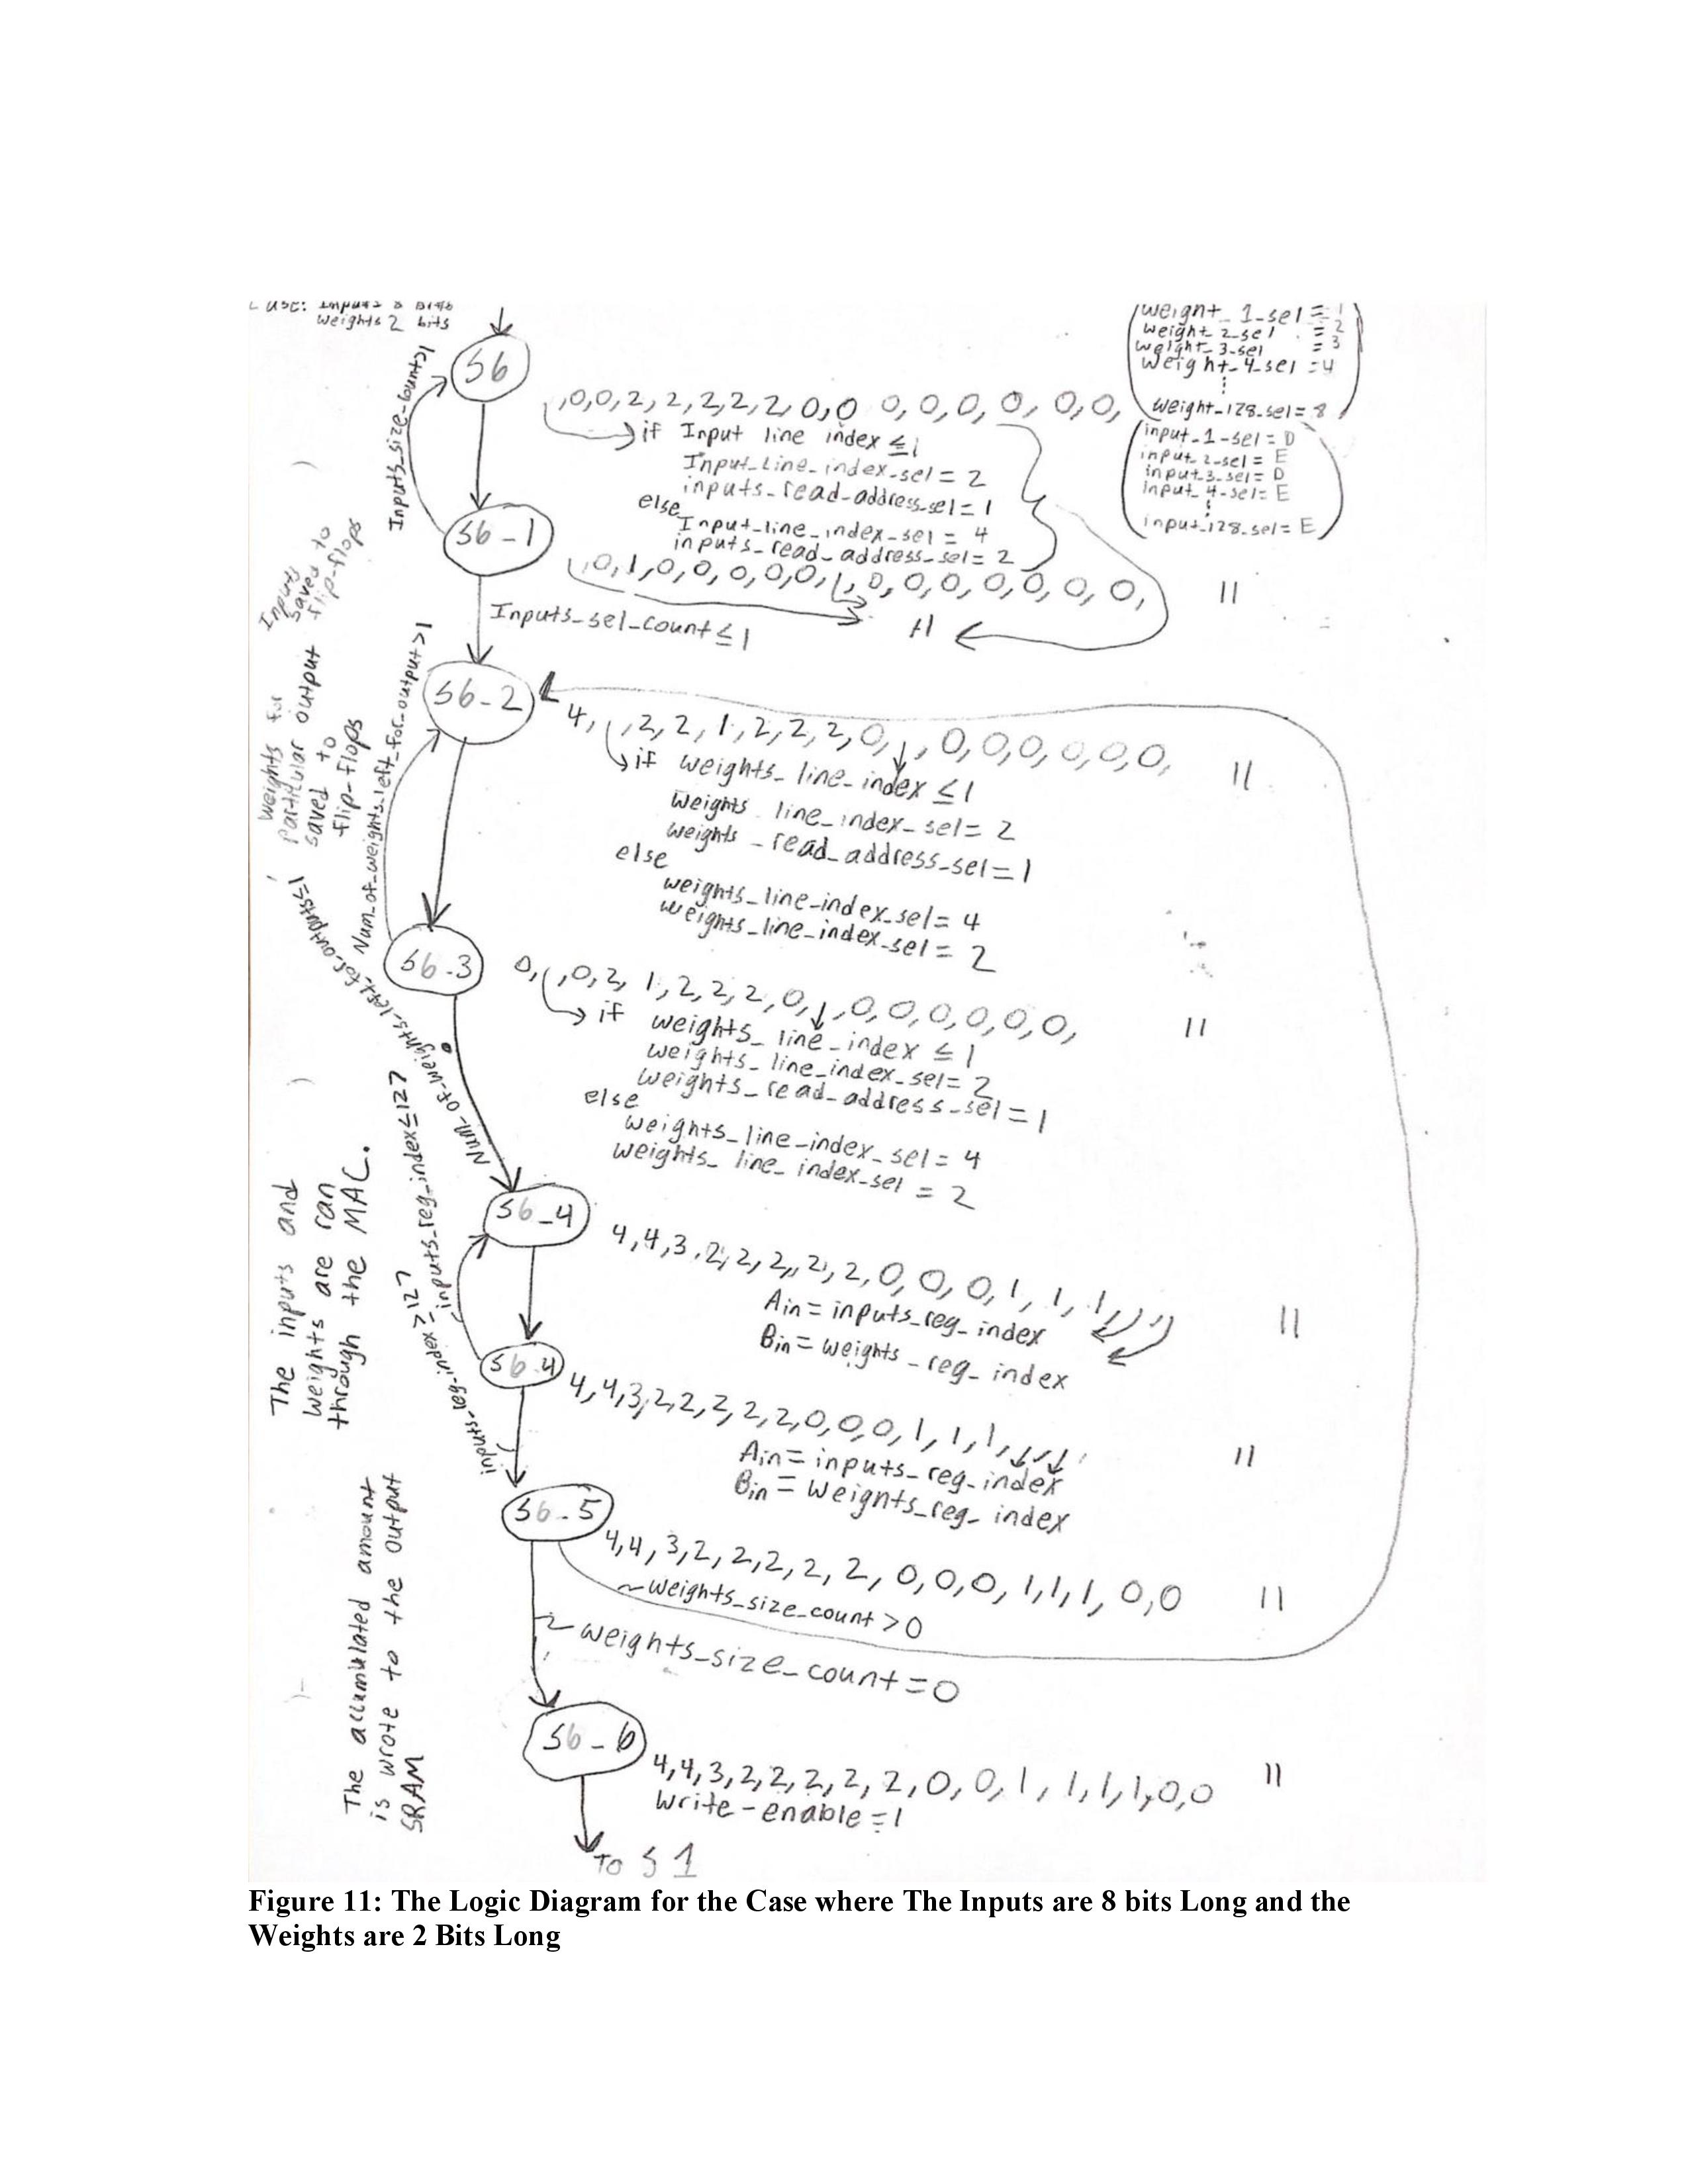 Case: Inputs 8 Bits
Weights 2 bits
weight_1_sel = 1
weight_2_sel = 2
weight_3_sel = 3
weight_4_sel = 4
⋮
weight_128_sel = 8
input_1_sel = D
input_2_sel = E
input_3_sel = D
input_4_sel = E
⋮
input_128_sel = E
S6
,0,0,2,2,2,2,2,0,0 0,0,0,0,0,0,
if Input line index ≤ 1
Input_Line_index_sel = 2
inputs_read_address_sel = 1
else
Input_line_index_sel = 4
inputs_read_address_sel = 2
S6_1
,0,1,0,0,0,0,0,1,0,0,0,0,0,0,0, 11
Inputs_sel_count ≤ 1
S6_2
4, ,2,2,1,2,2,2,0, ,0,0,0,0,0,0, 11
if weights_line_index ≤ 1
weights line_index_sel = 2
weights_read_address_sel = 1
else
weights_line_index_sel = 4
weights_line_index_sel = 2
S6_3
0, ,0,2,1,2,2,2,0, ,0,0,0,0,0,0, 11
if weights_line_index ≤ 1
weights_line_index_sel = 2
weights_read_address_sel = 1
else
weights_line_index_sel = 4
weights_line_index_sel = 2
S6_4
4,4,3,2,2,2,2,2,0,0,0,1,1,1,,, 11
Ain = inputs_reg_index
Bin = weights_reg_index
S6_4
4,4,3,2,2,2,2,2,0,0,0,1,1,1,,, 11
Ain = inputs_reg_index
Bin = weights_reg_index
S6_5
4,4,3,2,2,2,2,2,0,0,0,1,1,1,0,0 11
~weights_size_count > 0
~weights_size_count = 0
S6_6
4,4,3,2,2,2,2,2,0,0,1,1,1,1,0,0 11
write-enable = 1
To S1
Inputs
saved to
flip-flops
weights for
particular output
saved to
flip-flops
Num_of_weights_left_for_output > 1
Num_of_weights_left_for_outputs ≤ 1
The inputs and
weights are ran
through the MAC.
inputs_reg_index ≤ 127
inputs_reg_index > 127
The accumulated amount
is wrote to the output
SRAM
Figure 11: The Logic Diagram for the Case where The Inputs are 8 bits Long and the
Weights are 2 Bits Long